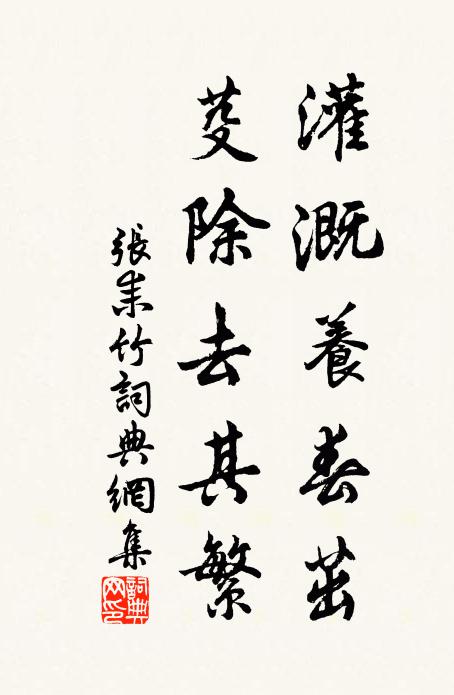 灌溉養春茁
芟除去其繁
張耒竹詞典網集
詞典网印